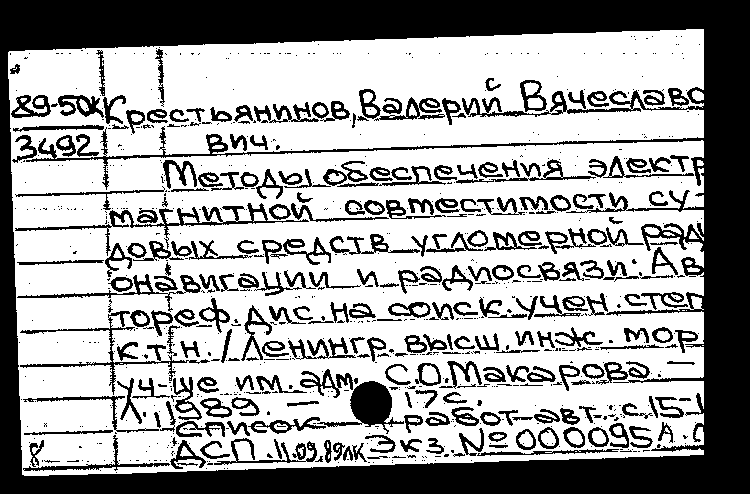 89-50К Крестьянинов, Валерий Вячеславо
3492 вич.
Методы обеспечения электр
магнитной совместимости су-
довых средств угломерной рад
онавигации и радиосвязи: Ав
тореф. дис. на соиск. учен. степ
к.т.н. / Ленингр. высш. инж. мор.
уч-ще им. адм. С.О. Макарова. —
Л., 1989. — 17 с.
список работ авт.: с. 15-1
8 ДСП. 11.09.89лк Экз. № 000095А.